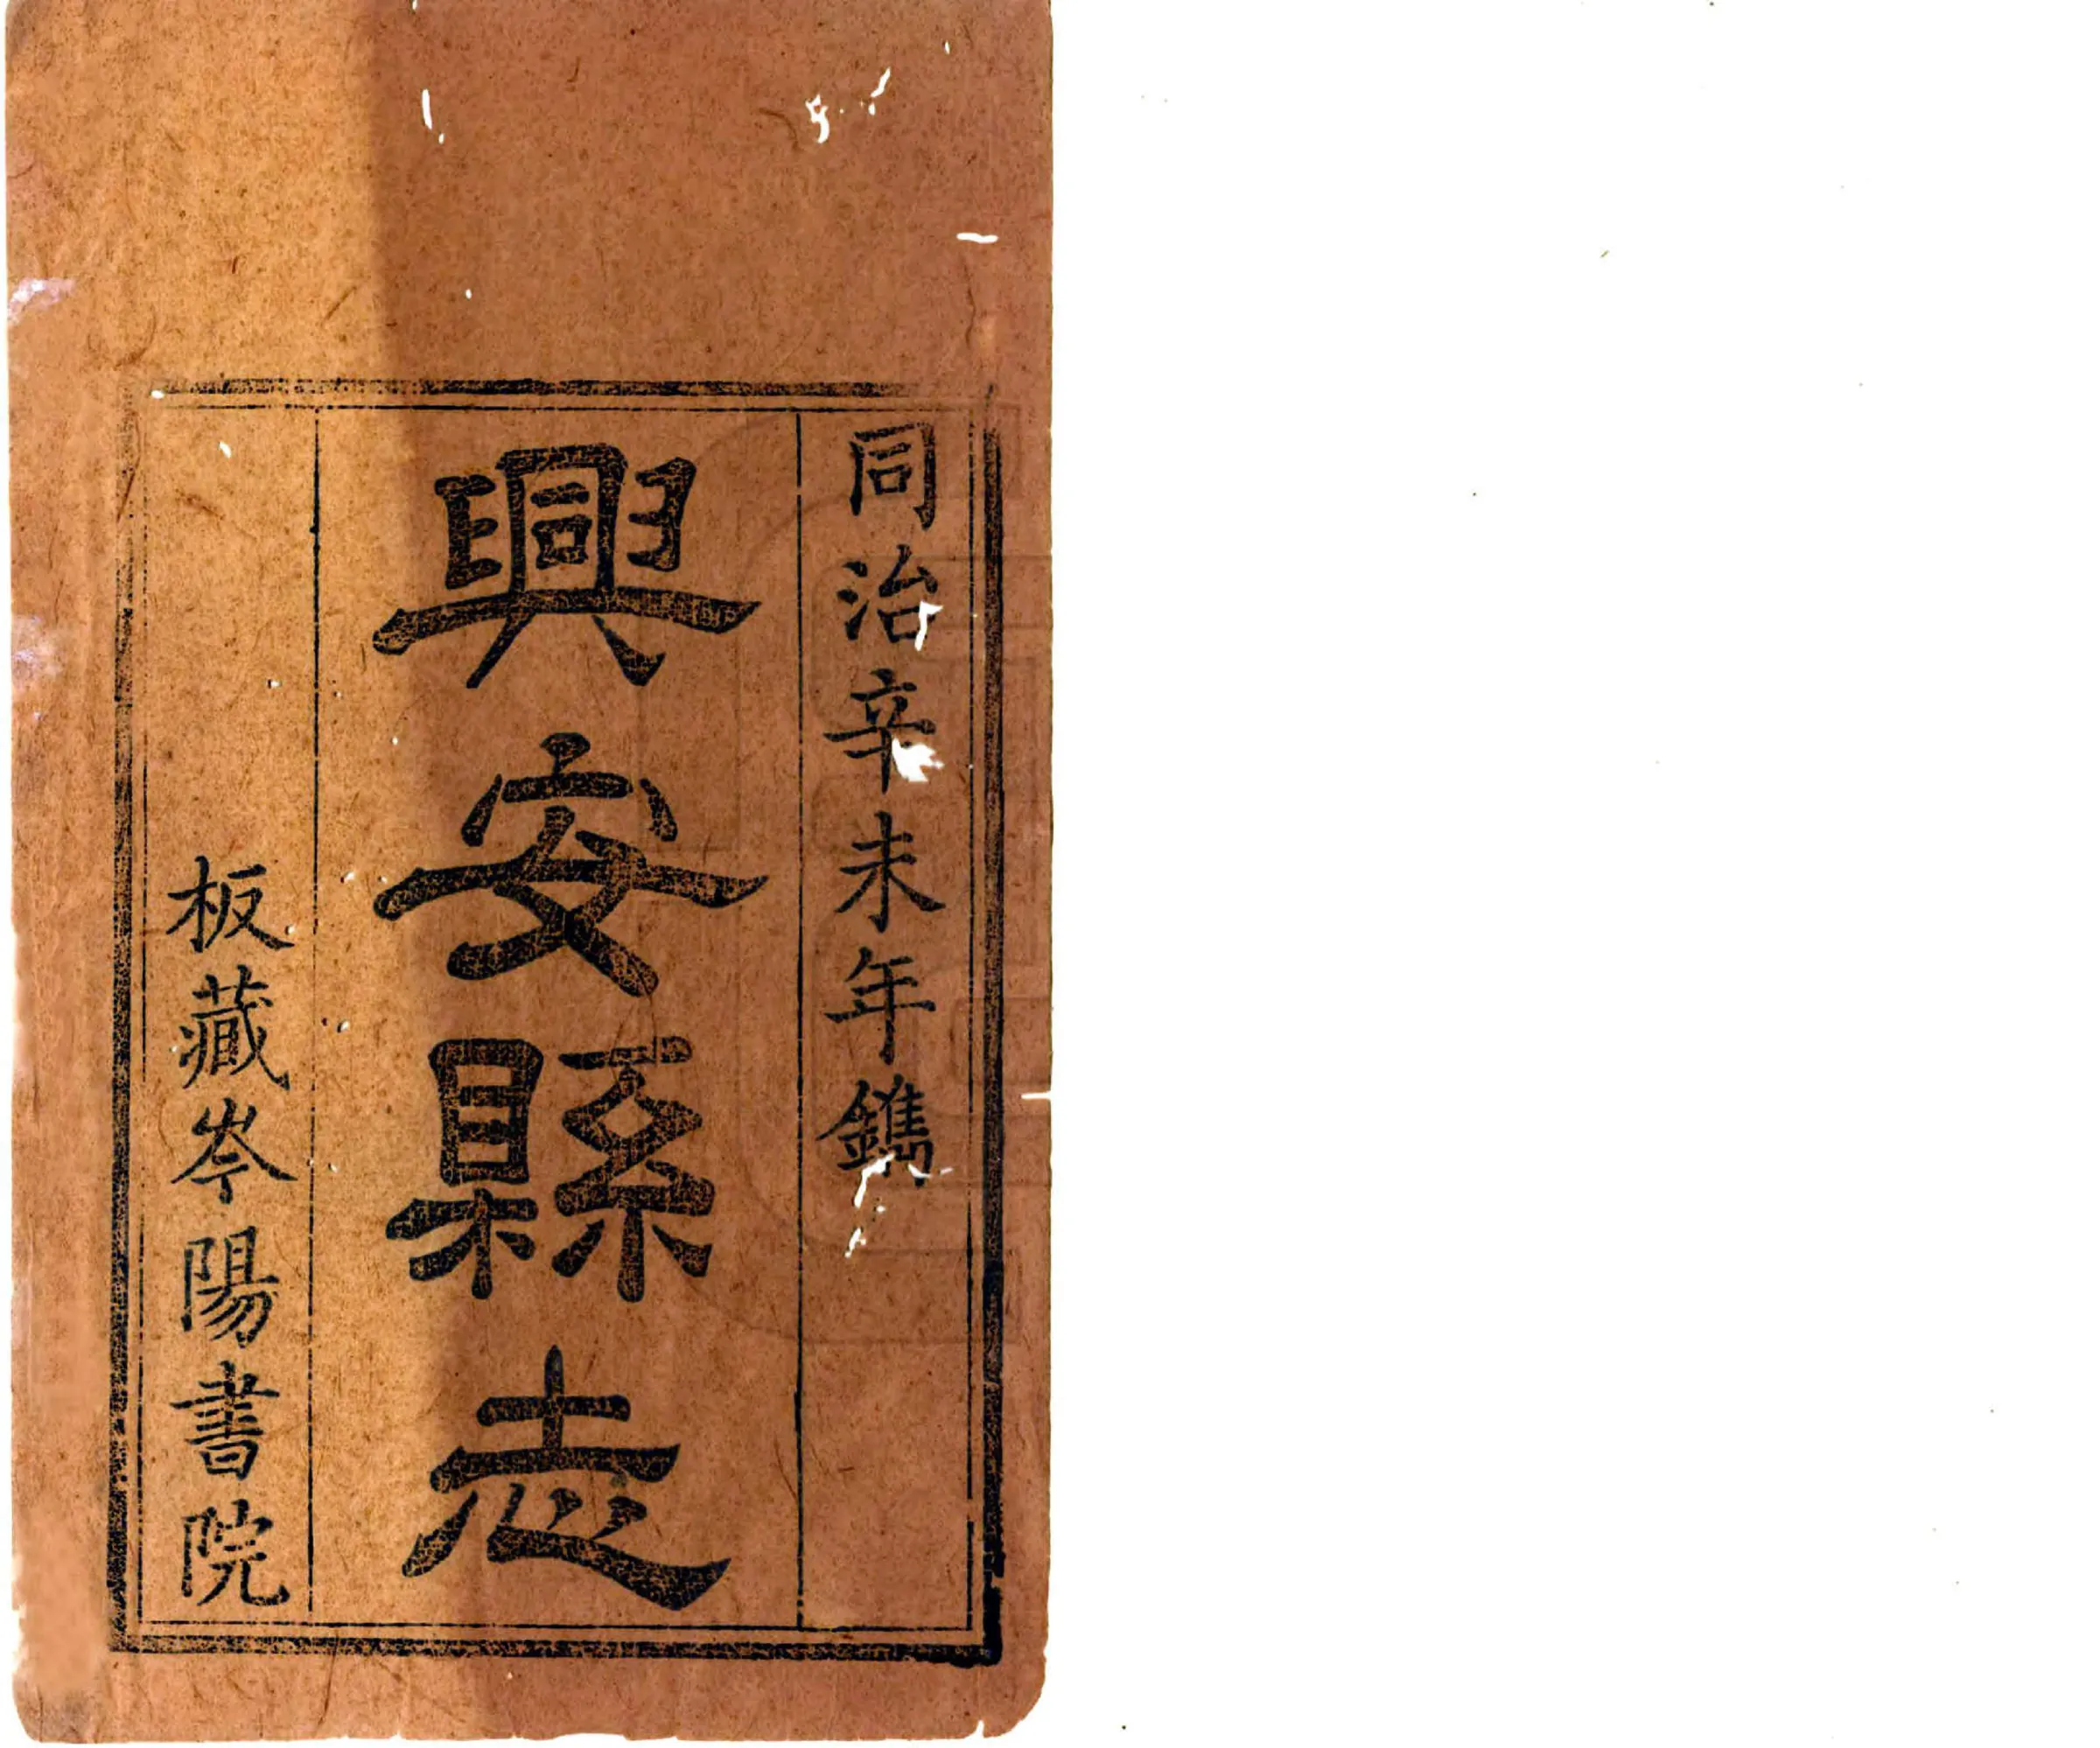 同治辛未年鐫
興安縣志
板藏岑陽書院